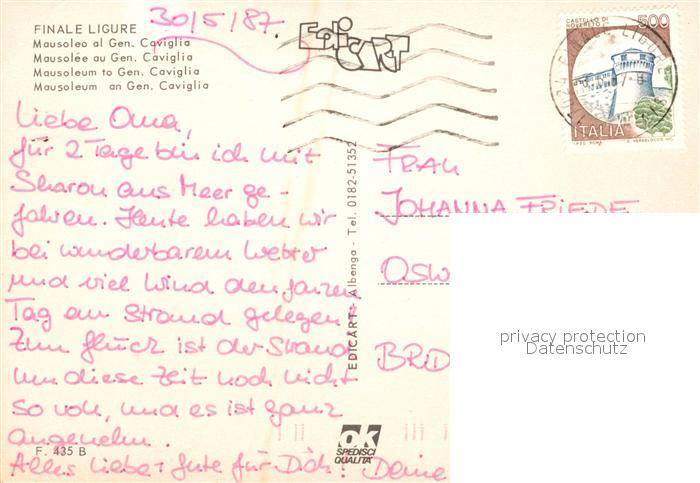 30/5/87.
FINALE LIGURE
Mausoleo al Gen. Caviglia
Mausolée au Gen. Caviglia
Mausoleum to Gen. Caviglia
Mausoleum an Gen. Caviglia
EdicART
CASTELLO DI
ROVERETO
500
ITALIA
Liebe Oma,
für 2 Tage bin ich mit
Sharon ans Meer ge-
fahren. Heute haben wir
bei wunderbarem Wetter
und viel Wind den ganzen
Tag am Strand gelegen.
Zum Glück ist der Strand
um diese Zeit noch nicht
so voll, und es ist ganz
angenehm.
Alles Liebe + Gute für Dich! Deine
F. 435 B
EDICART - Albenga - Tel. 0182-51352
ok
SPEDISCI
QUALITA'
FRAU
JOHANNA FRIEDE
OSW
BRID
privacy protection
Datenschutz